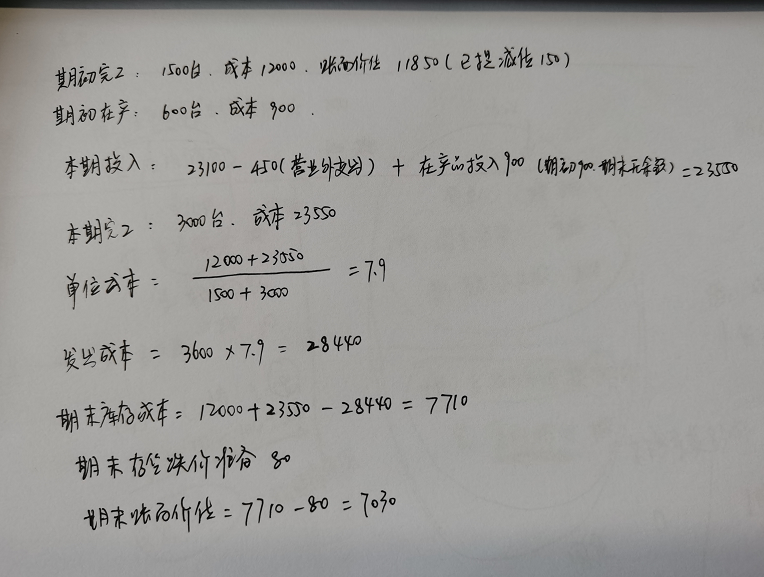 期初完工: 1500台. 成本12000. 账面价值 11850(已提减值150)
期初在产: 600台. 成本 900.
本期投入: 23100-450(营业外支出) + 在产品投入900 (期初900. 期末无余额) =23550
本期完工: 3000台. 成本23550
单位成本= 12000+23550 / 1500+3000 =7.9
发出成本 = 3600×7.9 = 28440
期末库存成本= 12000+23550-28440=7110
期末存货跌价准备 80
期末账面价值=7110-80=7030